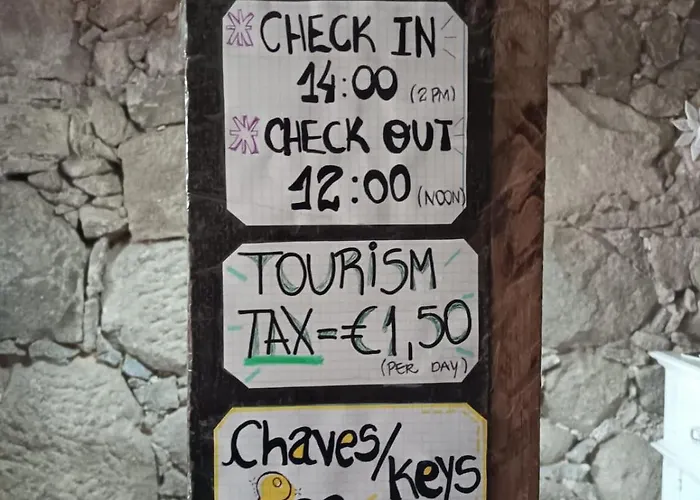 CHECK IN
14:00 (2 PM)
CHECK OUT
12:00 (NOON)
TOURISM
TAX=€1,50
(PER DAY)
Chaves/
Keys